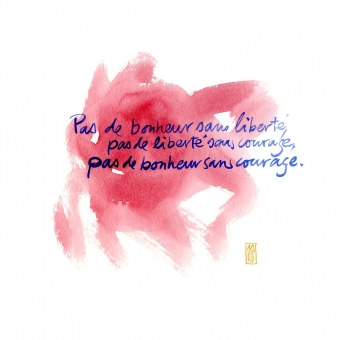 Pas de bonheur sans liberté,
pas de liberté sans courage,
pas de bonheur sans courage.